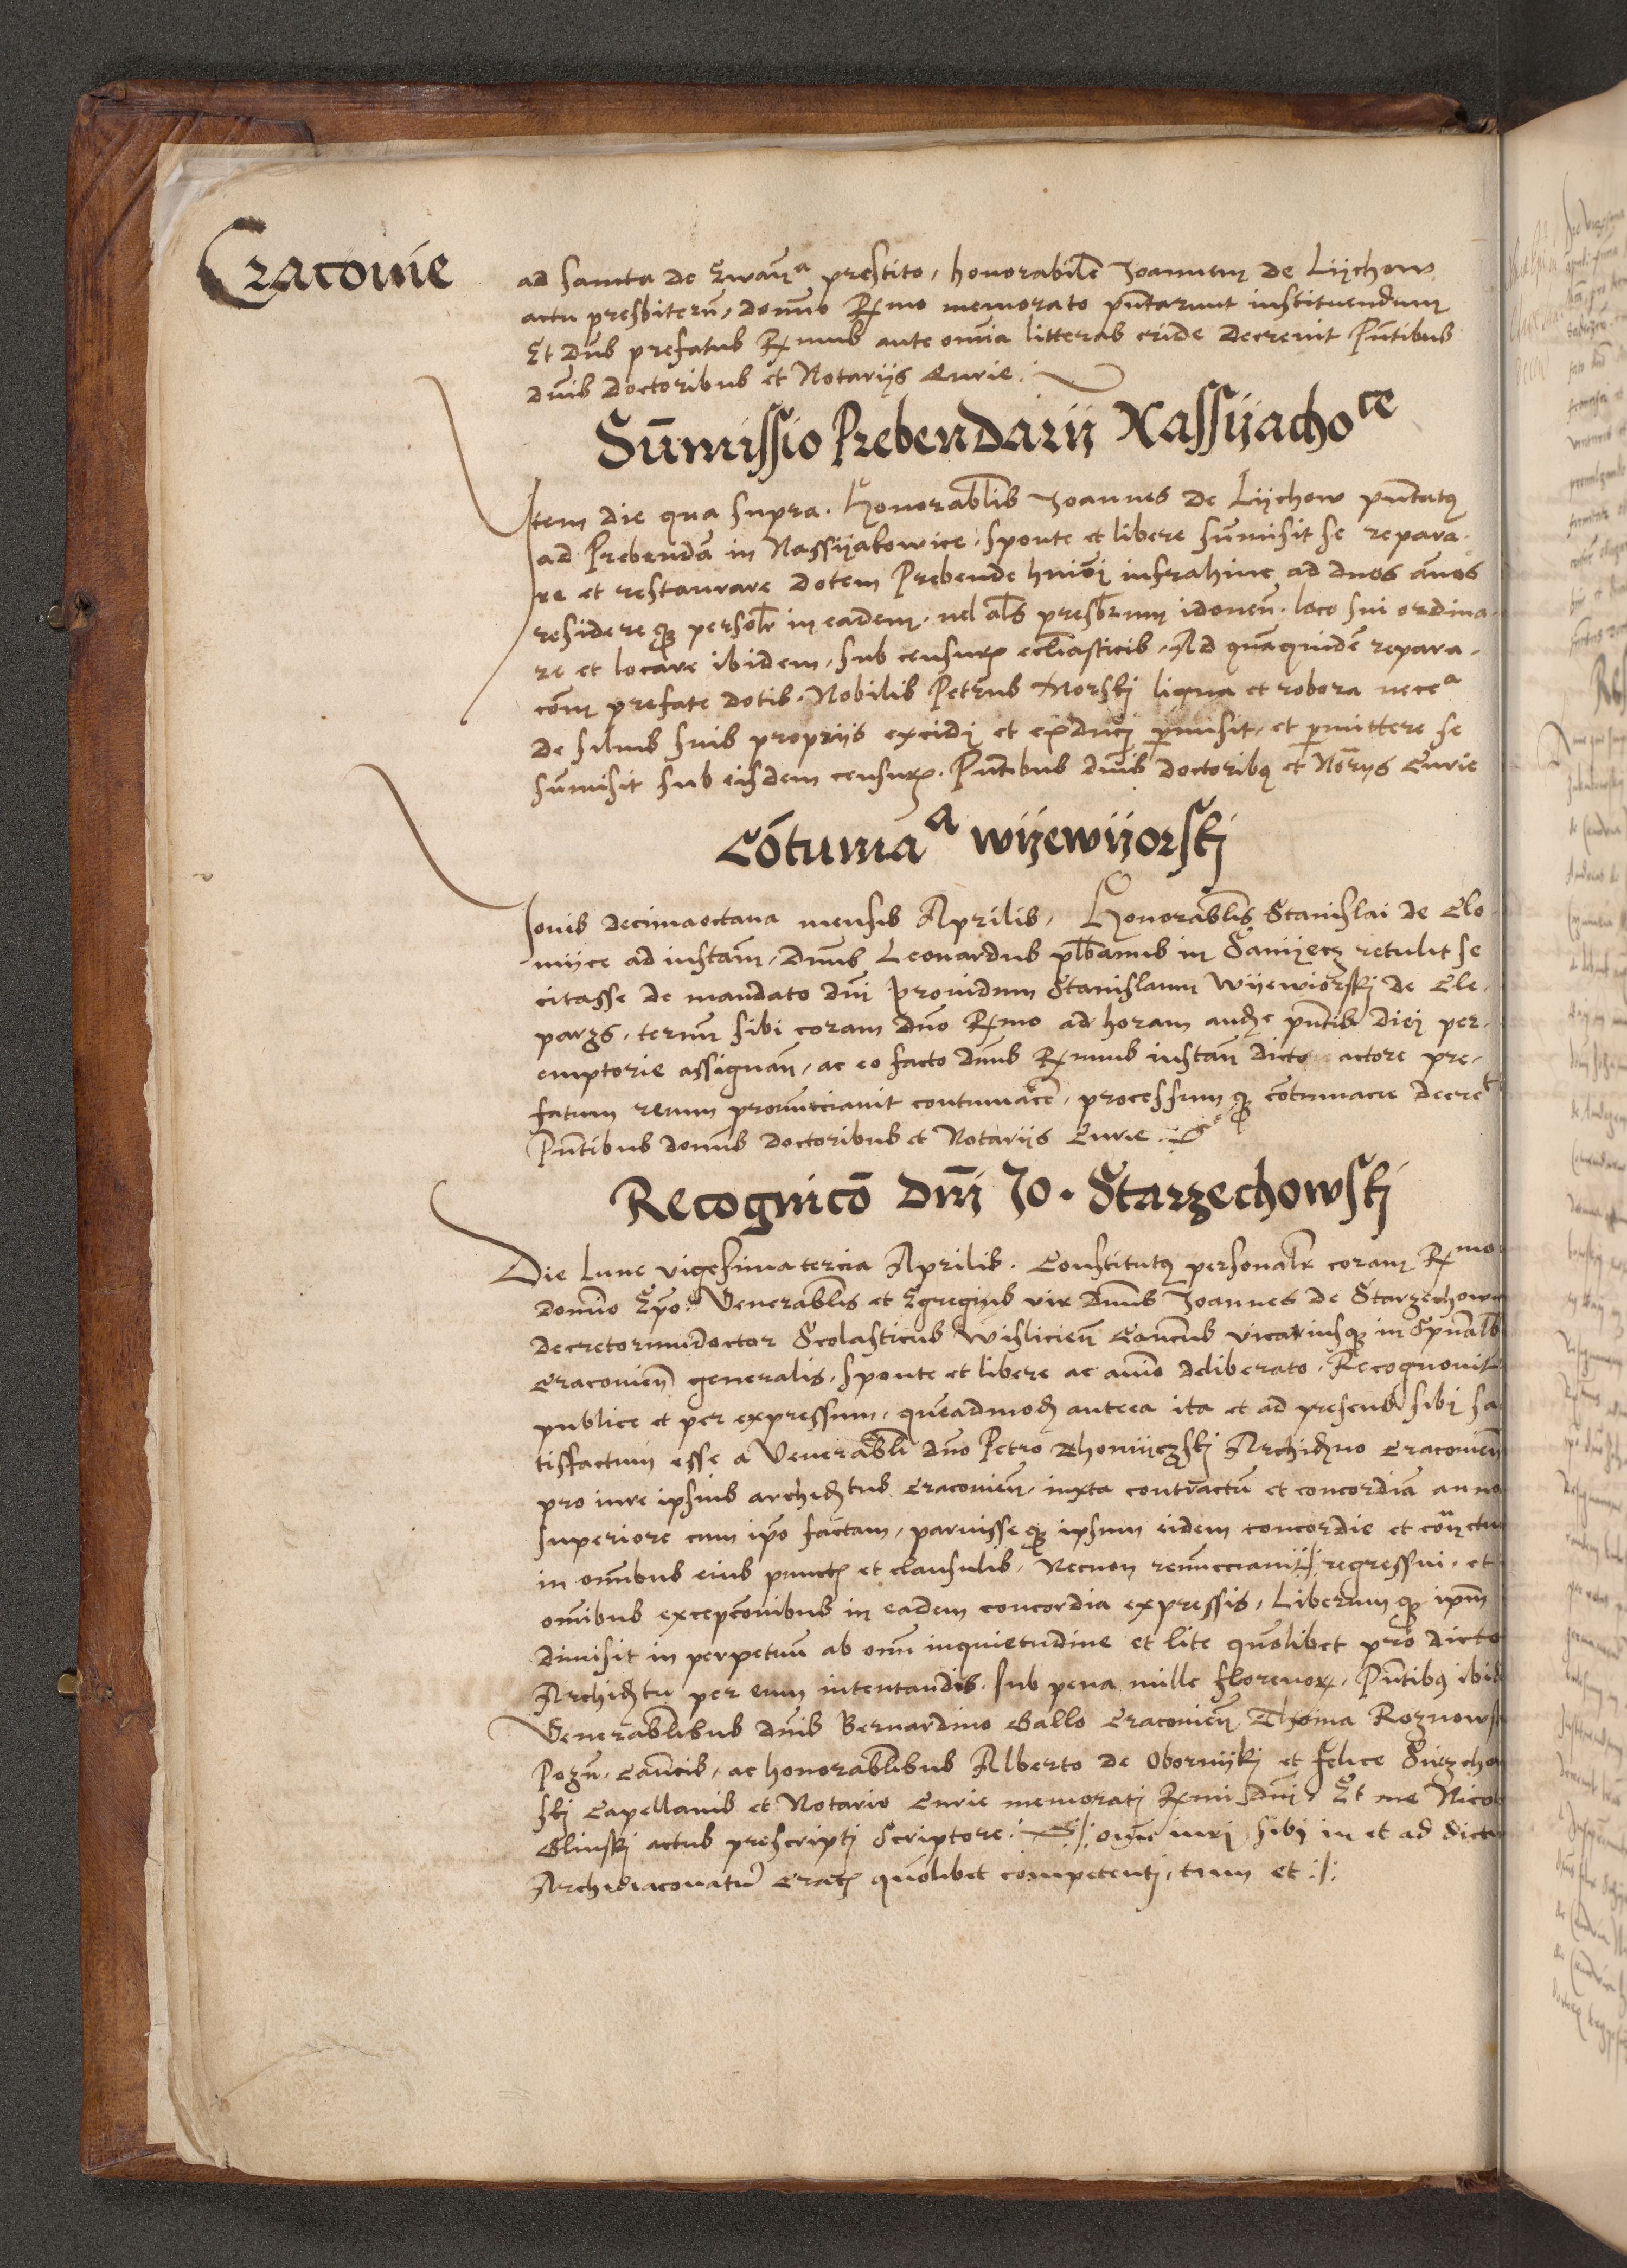 Cracovie
ad sancta dei Ewan^a prestito, honorabilẽ Joannem de Lijchow
actu presbiterũ, domĩo R^mo memorato pñtarunt instituendum
Et dñs prefatus R^mus ante omĩa litteras cride decrevit Pñtibus
dñis doctoribus et Notarijs Curie.
Sũmissio Prebendarij Nassijacho^ce
Item die qua supra. Honorablis Joannes de Lijchow pñtatus
ad Prebendã in Nassijakowice, sponte et libere sũmisit se repara-
re et restaurare dotem Prebende hmõi infrahinc ad duos ãnos
residereque persolr in eadem, vel als presbrum idoneũ loco sui ordina-
re et locare ibidem, sub censuris eccliasticis, Ad quãquidẽ repara-
cõem prefate dotis, Nobilis Petrus Morski ligna et robora nece^a
de silvis suis proprijs excidi et educi pmisit, et pmittere se
sũmisit sub eisdem censuris. Pñtibus dñis doctoribus et Norijs Curie
Cõtuma^a wijewijorski
Jovis decimaoctava mensis Aprilis, Honorablis Stanislai de Clo-
mijce ad instãm, Dñus Leonardus plbanus in retulit se
citasse de mandato dñi providum Stanislaum Wijewiorski de Cle-
parzs, termĩ sibi coram dño R^mo ad horam audẽ pñtis diei per-
emptorie assignañ, ac eo facto dñus R^mus instañ dicto actore pre-
fatum reum pronũcciavit contumacẽ, processumque cõtumacie decre^t
Pñtibus domĩs doctoribus et Notarijs Curie.
Recognicõ dñi Jo. Starzechowski
Die Lune vigesimatercia Aprilis. Constitutus personalr coram R^mo
domĩo Epo. Venerablis et Egregius vir Dñus Joannes de Starzechow
decretorumdoctor Scolasticus Wislicieñ Cancus vicariusque in Spũalib
Cracovieñ generalis, sponte et libere ac aĩo deliberato, Recognovit
publice et per expressum, quẽadmodũ antea ita et ad presens sibi sa-
tisfactum esse a Venerabli dño Petro Thomijczski Archidno Cracovieñ
pro iure ipsius archidtus Cracovieñ, iuxta contractũ et concordiã anno
superiore cum ipo factam, paruisseque ipsum eidem concordie et
in omĩbus eius punctis et clausulis, Necnon renũcciavit regressui, et
omĩbus excepcõnibus in eadem concordia expressis, Liberumque ipm
dimisit in perpetuũ ab omĩ inquietudine et lite quõlibet pro dicto
Archidtu per eum intentandis, sub pena mille florenorum, Pñtibus ibid
Venerablibus dñis Bernardino Gallo Cracovieñ, Thoma Roznowsk
Pozñ. Cañcis, ac honorablibus Alberto de Obornijki et Felice
ski Capellanis et Notario Curie memorati R^mi Dñi, Et me Nicol
Glinski actus prescripti Scriptore. omĩ iuri sibi in et ad dictu
Archidiaconatũ Craceñ quõlibet competenti, tum et